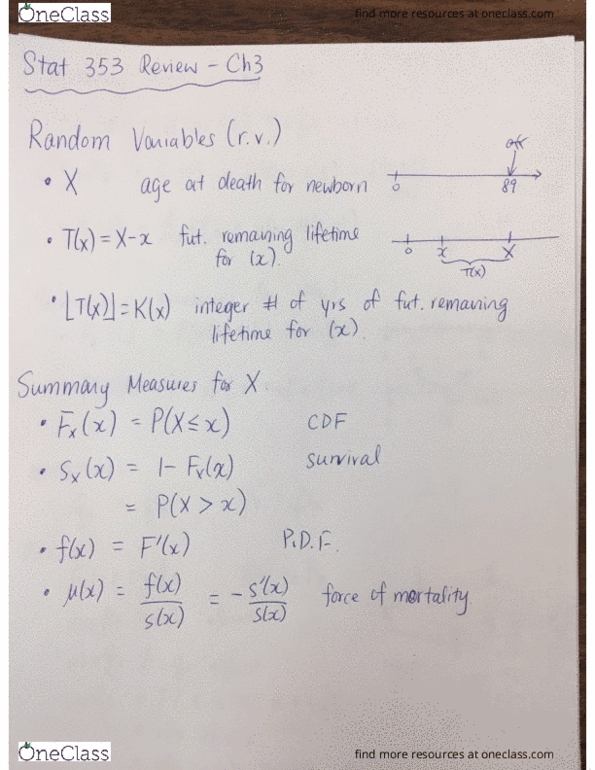 OneClass
find more resources at oneclass.com
Stat 353 Review - Ch3
Random Variables (r.v.)
• X age at death for newborn
0 89
• T(x) = X-x fut. remaining lifetime
for (x).
0 x X
T(x)
• ⌊T(x)⌋ = K(x) integer # of yrs of fut. remaining
lifetime for (x).
Summary Measures for X.
• Fx(x) = P(X ≤ x) CDF
• Sx(x) = 1 - Fx(x) survival
= P(X > x)
• f(x) = F'(x) P.D.F.
• μ(x) = f(x)/s(x) = - s'(x)/s(x) force of mortality.
OneClass
find more resources at oneclass.com